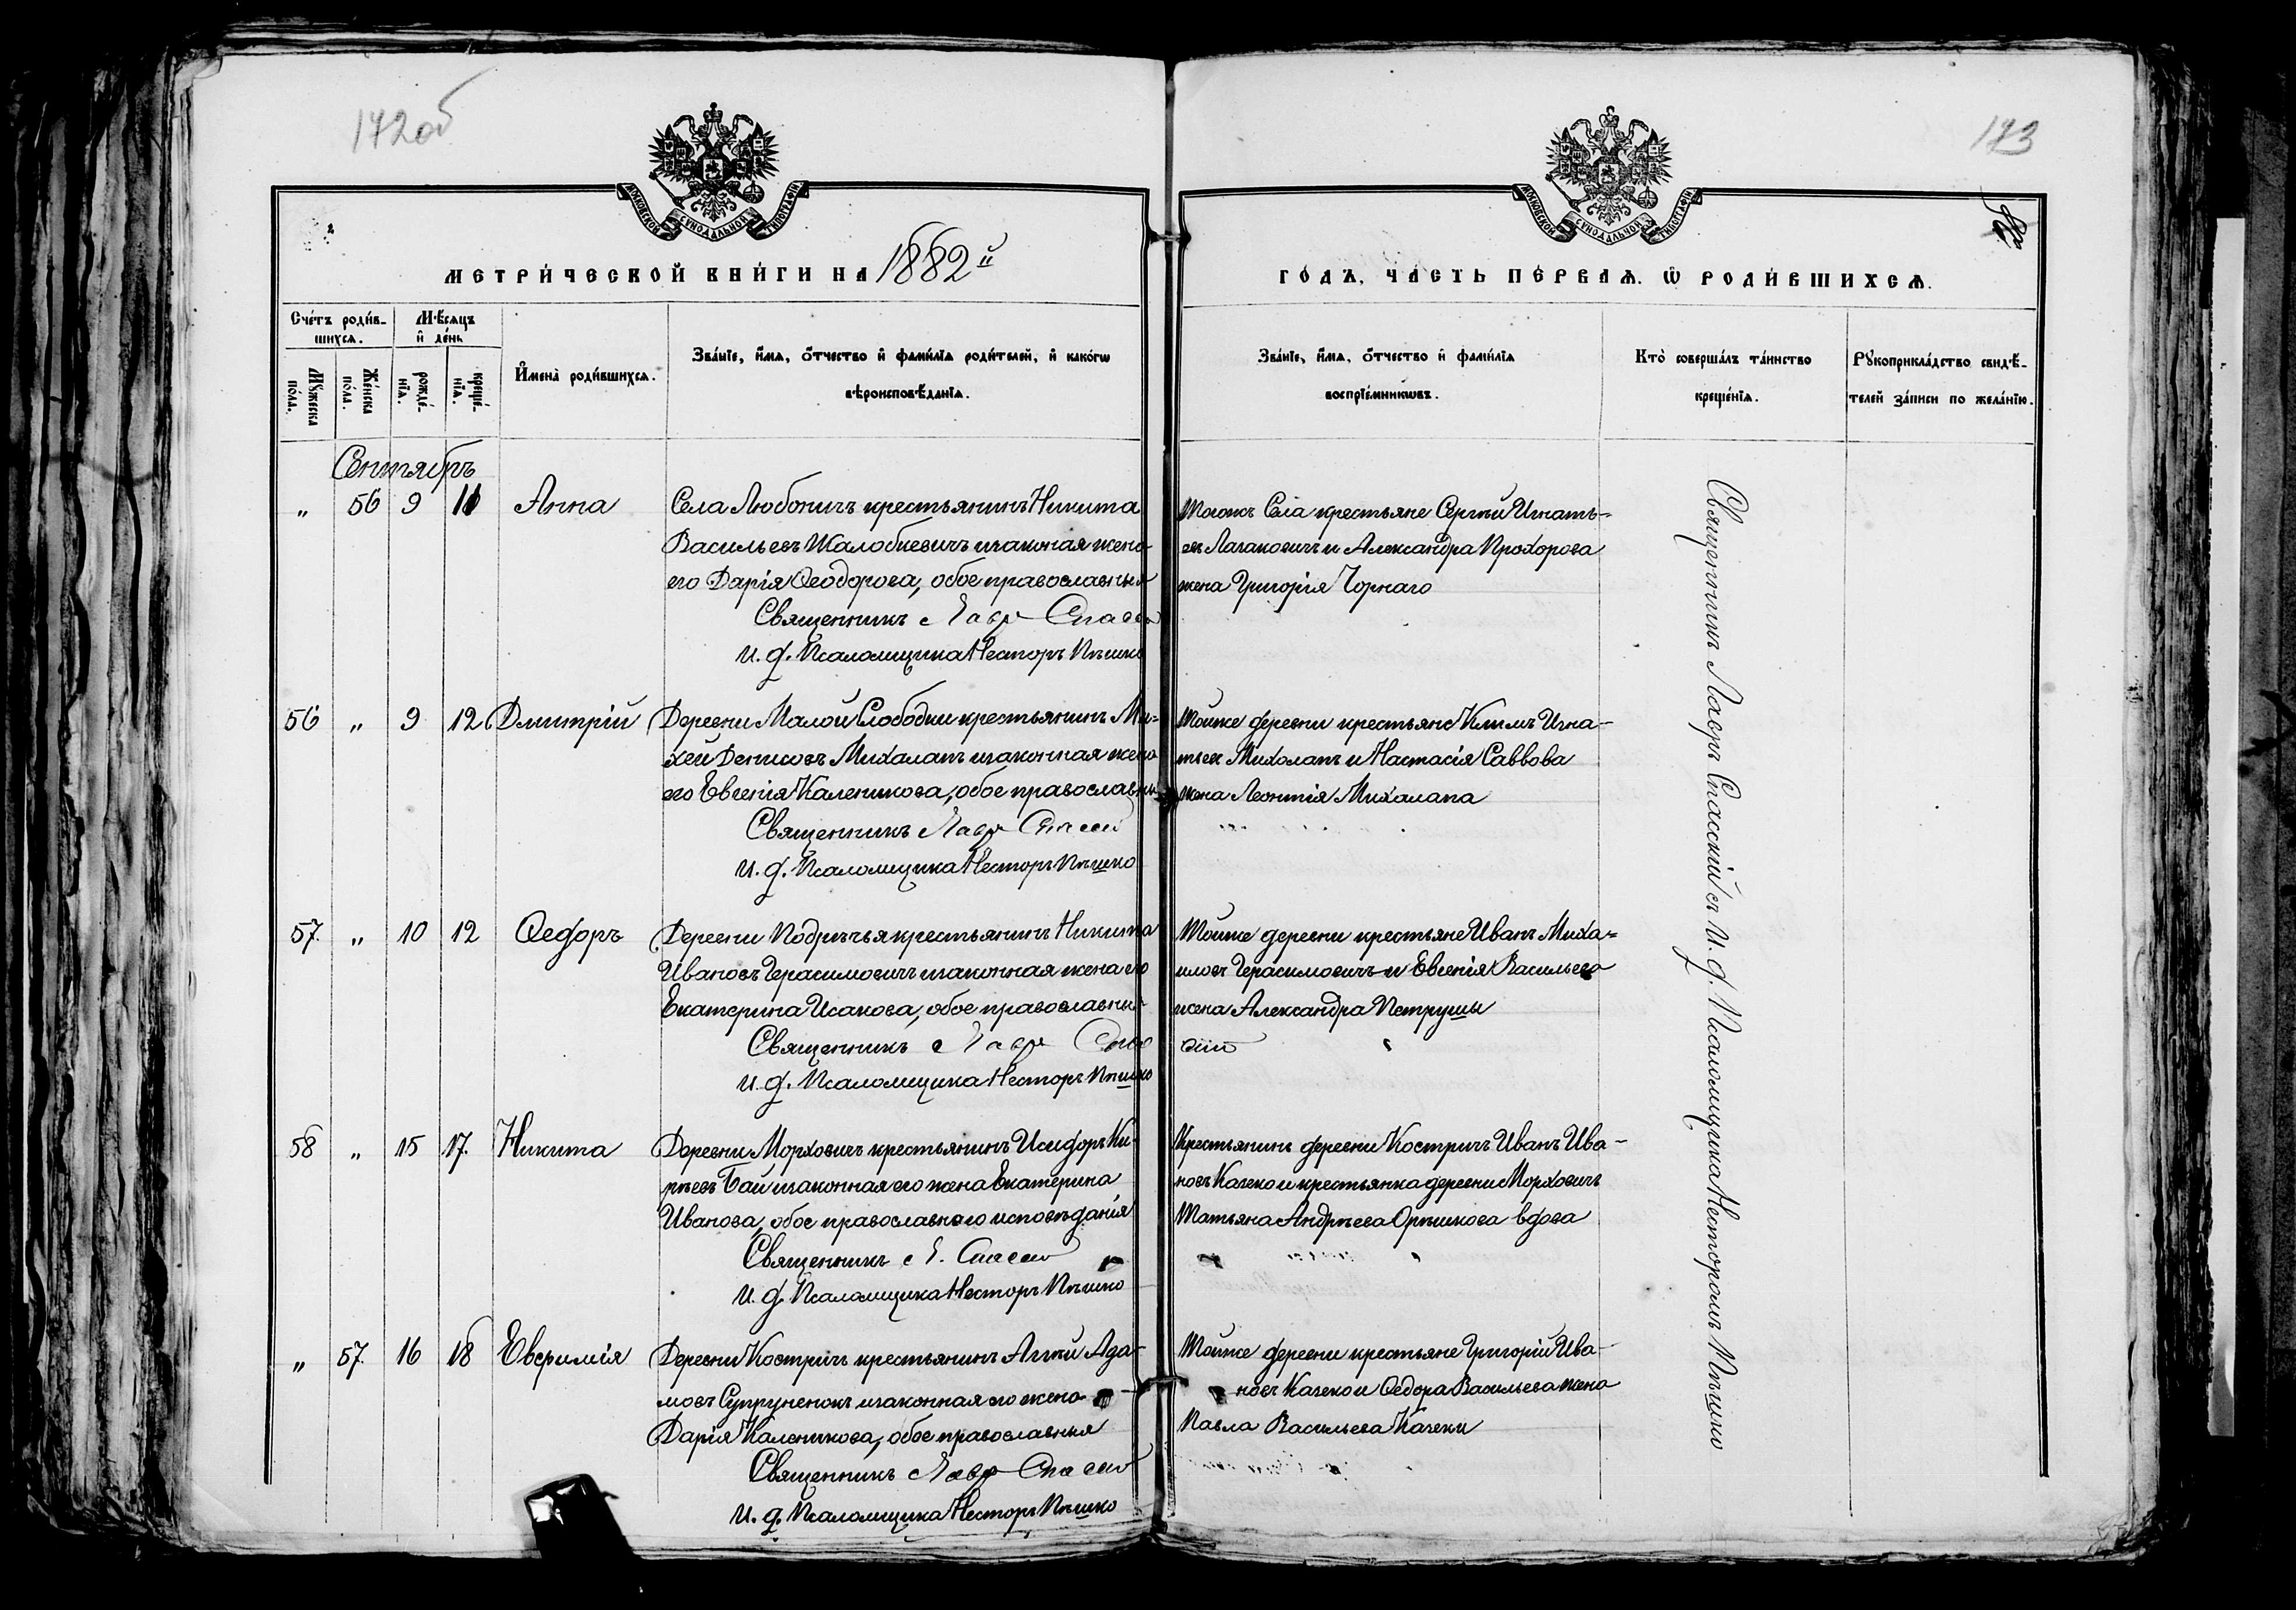 172об
173
МОСКОВСКОЙ СѴНОДАЛЬНОЙ ТИПОГРАФІИ
МОСКОВСКОЙ СѴНОДАЛЬНОЙ ТИПОГРАФІИ
МЕТРИ́ЧЕСКОЙ КНИ́ГИ НА 1882й
ГО́ДЪ, ЧА́СТЬ ПЕ́РВАЯ. Ѡ҆ РОДИ́ВШИХСЯ.
Сче́тъ роди́в-
шихся.
Мꙋ́жеска по́ла.
Же́нска по́ла.
Мѣ́сяцъ и҆ де́нь
рожде́нїя.
креще́нїя.
И҆мена̀ роди́вшихся.
Зва́нїе, и҆́мя, ѻ҆́тчество и҆ фами́лїя роди́телей, и҆ како́гѡ
вѣроисповѣ́данїя.
Зва́нїе, и҆́мя, ѻ҆́тчество и҆ фами́лїя
воспрїе́мникѡвъ.
Кто̀ соверша́лъ та́инство
креще́нїя.
Рꙋкоприкла́дство свидѣ́-
телей за́писи по жела́нїю.
Сентябрь
„ 56 9 11 Анна
Села Любоничъ крестьянинъ Никита
Васильевъ Жалобкевичъ и законая жена
его Дарія Ѳеодорова, обое православныя
Священникъ Лавръ
И. д. Псаломщика Несторъ Пѣшко
Тогожъ Села крестьяне Сергѣй Игнать-
евъ Лагаковичъ и Александра Прохорова
жена Григорія Чорнаго
56 „ 9 12 Дмитрій
Деревни Малой Слободки крестьянинъ Ми-
хей Денисовъ Михалапъ и законная жена
его Евгенія Каленикова, обое православны
Священникъ Лавръ
И. д. Псаломщика Несторъ Пѣшко
Тойже деревни крестьяне Климъ Игна-
тьев Михолапъ и Настасія Саввова
жена Леонтія Михалапа
57. „ 10 12 Ѳедоръ
Деревни Подрѣчья крестьянинъ Никита
Ивановъ Герасимовичъ и законная жена его
Екатерина Исакова, обое православныя
Священникъ Лавръ
И. д. Псаломщика Несторъ Пѣшко
Тойже деревни крестьяне Иванъ Миха-
иловъ Герасимовичъ и Евгенія Васильева
жена Александра Петруши
58 „ 15 17. Никита
Деревни Морховичъ крестьянинъ Исидоръ Ки-
рѣевъ Бай и законная его жена Екатерина
Иванова, обое православного исповѣданія
Священникъ Л.
И. д. Псаломщика Несторъ Пѣшко
Крестьянинъ деревни Костричъ Иванъ Ива-
новъ Качеко и крестьянка деревни Морховичъ
Татьяна Андрѣева Орѣшкова вдова
„ 57. 16 18 Евфимія
Деревни Костричъ крестьянинъ Агѣй Ада-
мовъ Супруненокъ и законная его жена
Дарія Каленикова, обое православныя
Священникъ Лавръ
И. д. Псаломщика Несторъ Пѣшко
Тойже деревни крестьяне Григорій Ива-
новъ Качеко и Ѳедора Васильева жена
Павла Васильева Качеки
Священникъ Лавръ Спасскій съ И. д. Псаломщика Несторомъ Пѣшко